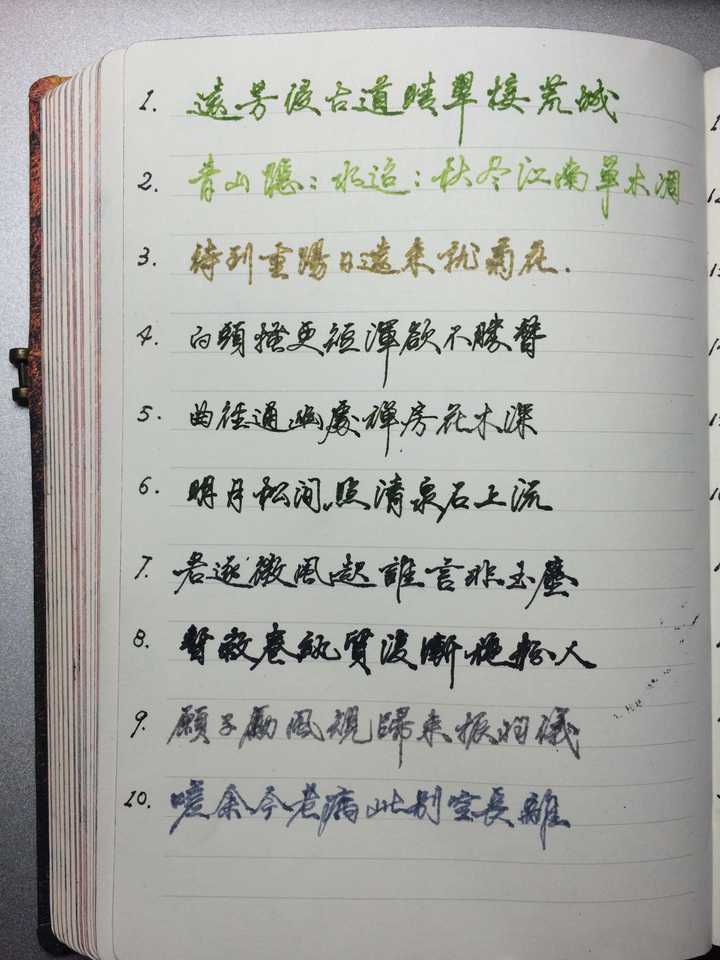 1. 遠芳侵古道晴翠接荒城
2. 青山隱:水迢:秋尽江南草木凋
3. 待到重陽日還來就菊花.
4. 白頭搔更短渾欲不勝簪
5. 曲徑通幽處禪房花木深
6. 明月松间照清泉石上流
7. 若逐微風起誰言非玉塵
8. 質漸粉人
9. 願子勵風規歸来振羽儀
10. 嗟余今老病此别空長離